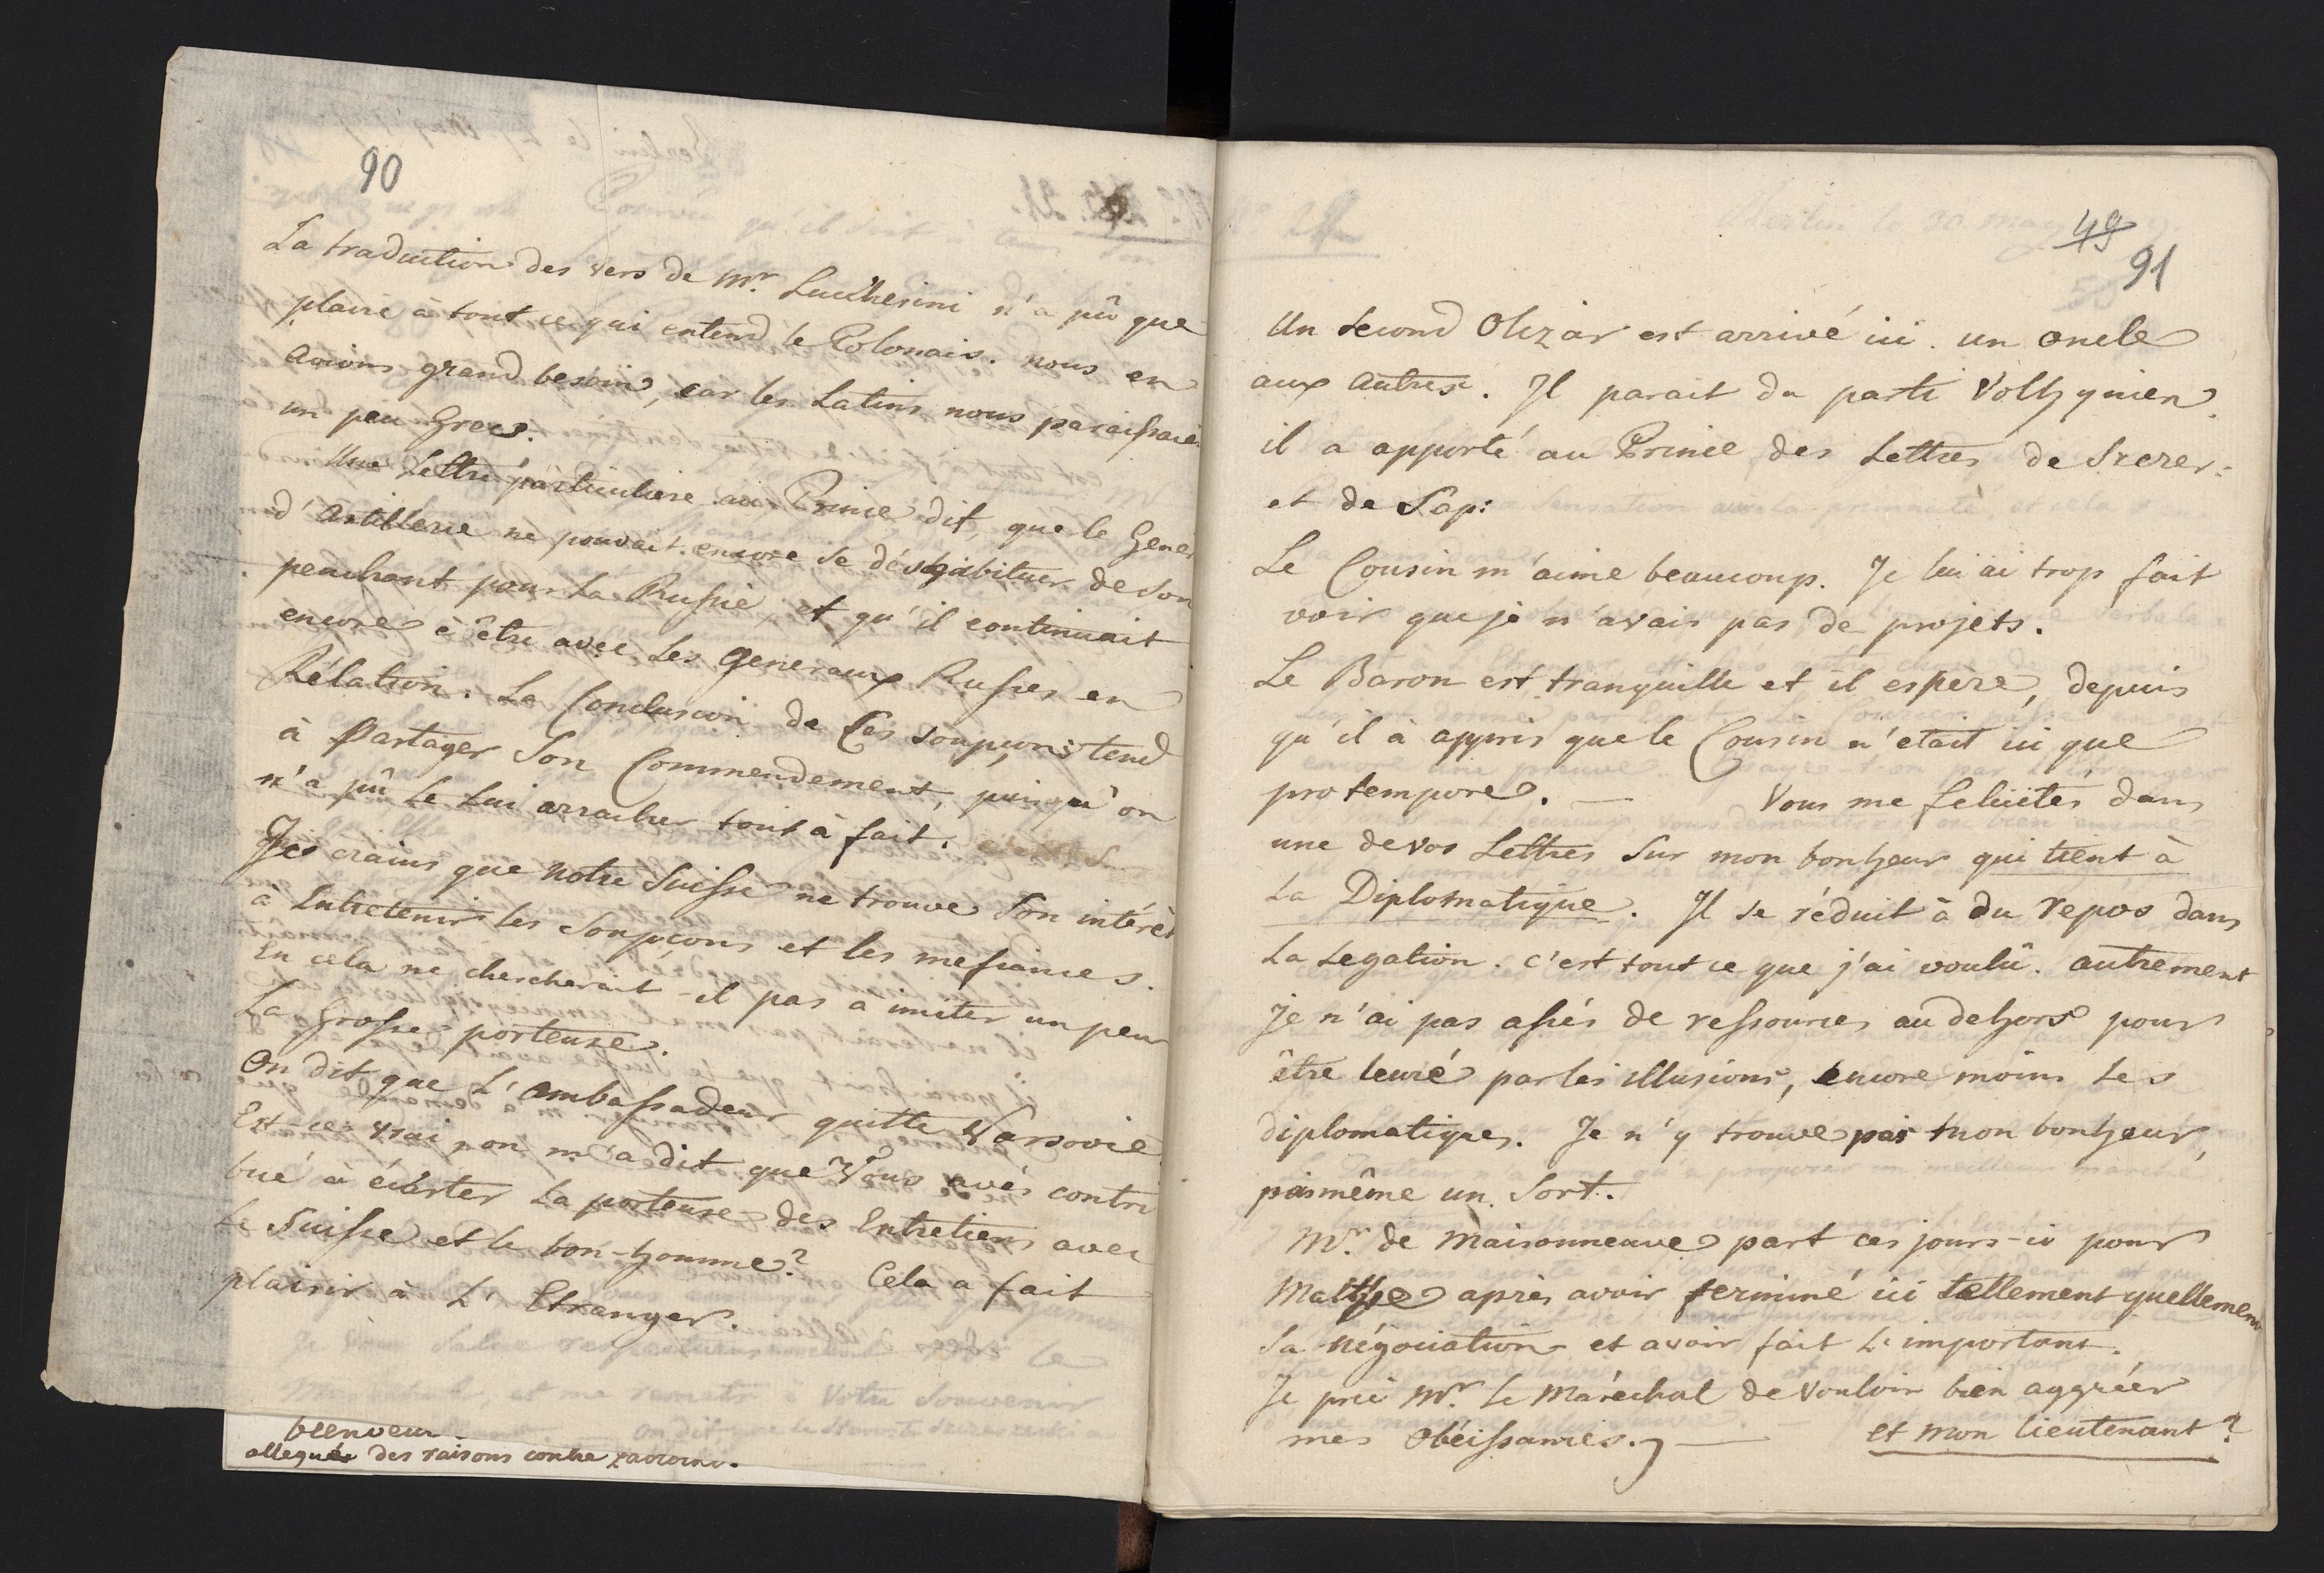 90
La traduction des vers de Mr. Lucchesini n'a pû que
plaire à tout ce qui entend le Polonais. nous en
avions grand besoin, car les Latins nous paraissaie
un peu Grecs.
Une Lettre particuliere au Prince dit, que le Gener
d'Artillerie ne pouvait encore se déshabituer de son
penchant pour la Russie, et qu'il continuait
encore à être avec les Generaux Russes en
Rélation. La Conclusion de Ces soupçons tend
à Partager Son Commendement, puisqu'on
n'a pû le Lui arracher tout à fait.
Je crains que notre Suisse ne trouve Son intérêt
à Entretenir les Soupçons et les mefiances.
En cela ne chercherait-il pas à imiter un peu
La Grosse porteuse.
On dit que L'ambassadeur quitte Varsovie
Est-ce vrai, on m'a dit que Vous avés contri
bué à écarter La porteuse des Entretiens avec
Le Suisse et le bon-homme? Cela a fait
plaisir à L'Etranger.
bienveu
alleguée des raisons contre
49
91
Un second Olizar est arrivé ici. un oncle
aux autres. Il parait du parti Volhynien.
il a apporté au Prince des Lettres de Szczer-
et de Sap:
Le Cousin m'aime beaucoup. Je lui ai trop fait
voir que je n'avais pas de projets.
Le Baron est tranquille et il espère, depuis
qu'il à appris que le Cousin n'etait ici que
pro tempore. — Vous me felicités dans
une de vos Lettres Sur mon bonheur qui tient à
La Diplomatique. Il se réduit à du repos dans
La Legation. c'est tout ce que j'ai voulû. autrement
Je n'ai pas assés de ressources au dehors pour
être leuré par les illusions, encore moins les
diplomatiques. Je n'y trouve pas mon bonheur,
pas même un Sort.
Mr. de Maisonneuve part ces jours-ci pour
Malthe après avoir terminé ici tellement quellement
Sa négociation et avoir fait L'important.
Je prie Mr. le Maréchal de vouloir bien aggréer
mes Obéissances. — et mon lieutenant?